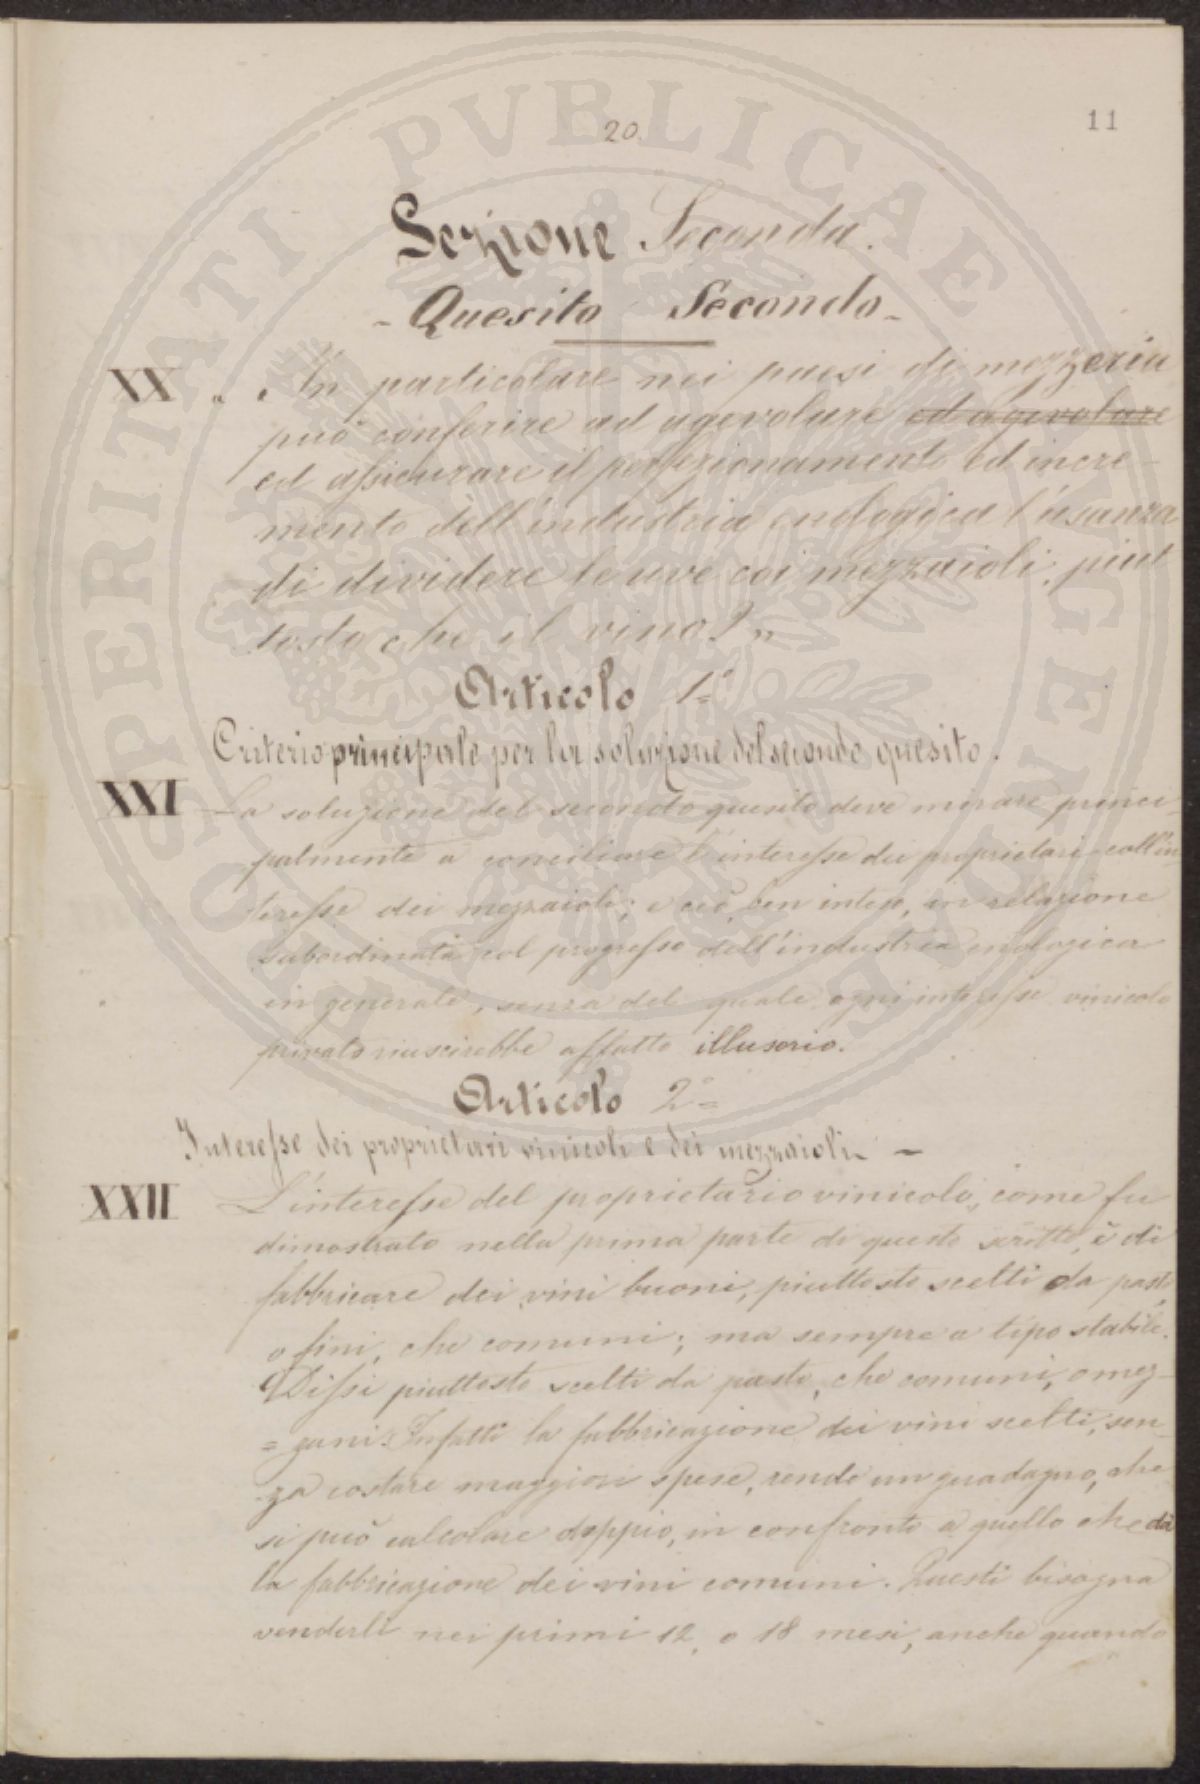 PROSPERITATI PVBLICAE AVGENDAE
20.
11
Sezione Seconda.
- Quesito Secondo -
XX „ In particolare nei paesi di mezzeria
può conferire ad agevolare ed agevolare
ed assicurare il perfezionamento ed incre-
mento dell'industria enologica l'usanza
di dividere le uve coi mezzaioli, piut
tosto che il vino? „
Articolo 1°
Criterio principale per la soluzione del secondo quesito.
XXI La soluzione del secondo quesito deve mirare princi-
palmente a conciliare l'interesse dei proprietari coll'in
teresse dei mezzaioli; e ciò, ben inteso, in relazione
subordinata col progresso dell'industria enologica
in generale, senza del quale ogni interesse vinicolo
privato riuscirebbe affatto illusorio.
Articolo 2°
Interesse dei proprietari vinicoli e dei mezzaioli -
XXII L'interesse del proprietario vinicolo, come fu
dimostrato nella prima parte di questo scritto, è di
fabbricare dei vini buoni, piuttosto scelti da pasto,
o fini, che comuni; ma sempre a tipo stabile.
Dissi piuttosto scelti da pasto, che comuni, o mez-
=zani. Infatti la fabbricazione dei vini scelti, sen-
za costare maggiori spese, rende un guadagno, che
si può calcolare doppio, in confronto a quello che dà
la fabbricazione dei vini comuni. Questi bisogna
venderli nei primi 12, o 18 mesi, anche quando